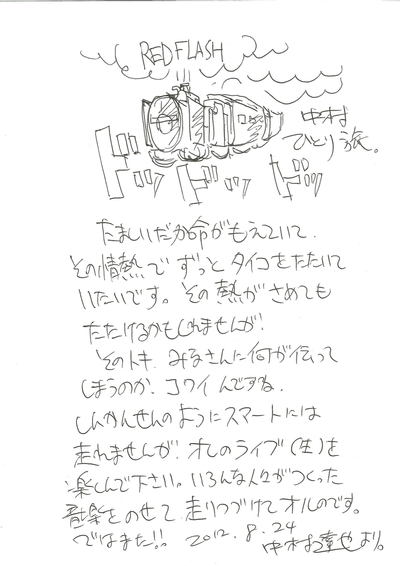 RED FLASH
中村
ひとり旅。
たましいだか命がもえていて.
その情熱でずっとタイコをたたいて
いたいです。その熱がさめても
たたけるかもしれませんが!
そのトキ. みなさんに何が伝って
しまうのか. コワイんですね.
しんかんせんのようにスマートには
走れませんが! オレのライブ(生)を
楽しんで下さい。いろんな人々がつくった
音楽をのせて 走りつづけてオルのです。
ではまた!! 2012. 8. 24
中村達也より。